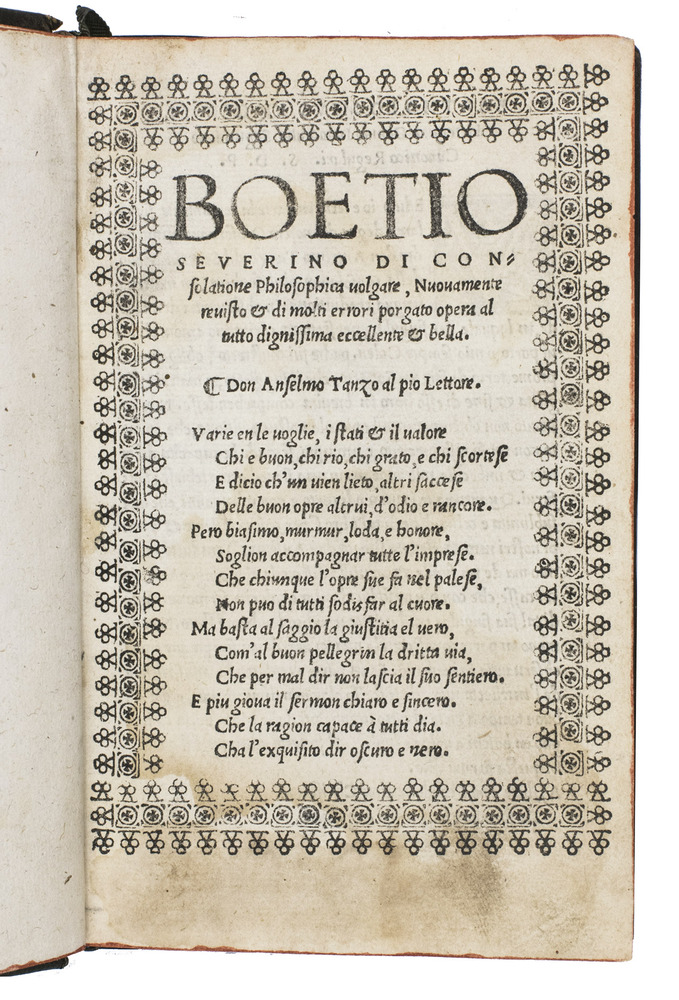 BOETIO
SEVERINO DI CON⸗
ſolatione Philoſophica uolgare, Nuouamente
reuiſto & di molti errori porgato opera al
tutto digniſſima eccellente & bella.
☾ Don Anſelmo Tanzo al pio Lettore.
Varie en le uoglie, i ſtati & il ualore
Chi e buon, chi rio, chi grato, e chi ſcorteſe
E dicio ch'un uien lieto, altri ſacceſe
Delle buon opre altrui, d'odio e rancore.
Pero biaſimo, murmur, loda, e honore,
Soglion accompagnar tutte l'impreſe.
Che chiunque l'opre ſue fa nel paleſe,
Non puo di tutti ſodisfar al cuore.
Ma baſta al ſaggio la giuſtitia el uero,
Com'al buon pellegrin la dritta uia,
Che per mal dir non laſcia il ſuo ſentiero.
E piu gioua il ſermon chiaro e ſincero.
Che la ragion capace à tutti dia.
Cha l'exquiſito dir oſcuro e nero.